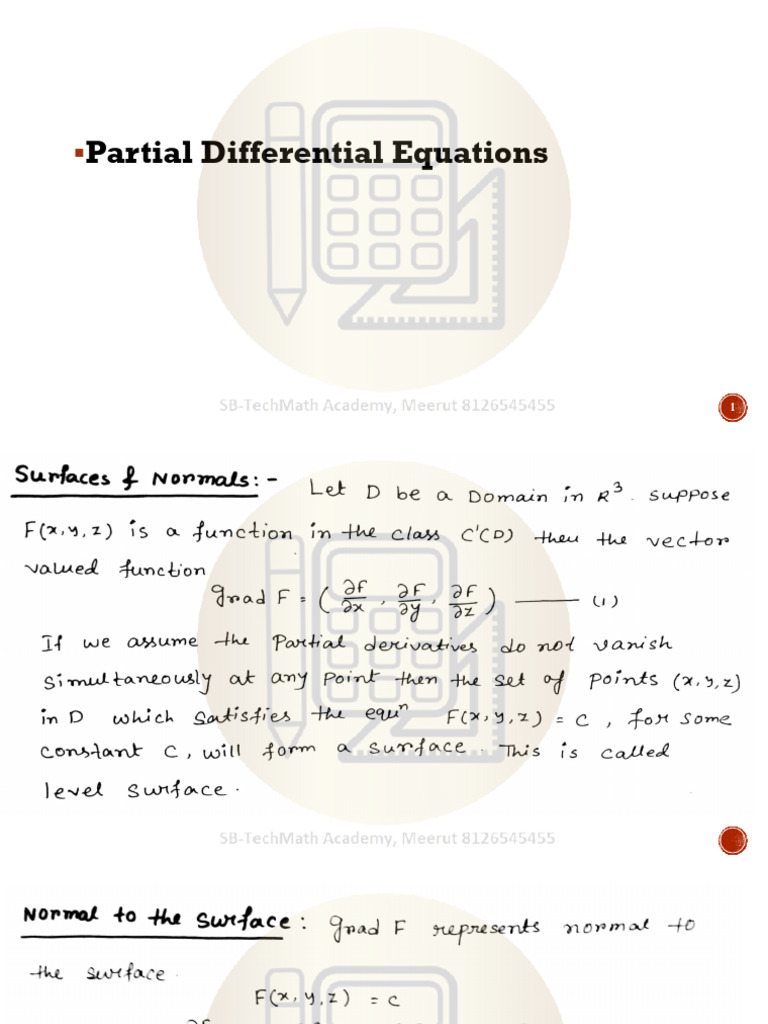 ▪Partial Differential Equations
SB-TechMath Academy, Meerut 8126545455
1
Surfaces & Normals:- Let D be a Domain in R³. Suppose
F(x,y,z) is a function in the class C'(D) then the vector
valued function
grad F = (∂F/∂x, ∂F/∂y, ∂F/∂z) —— (1)
If we assume the Partial derivatives do not vanish
simultaneously at any point then the set of points (x,y,z)
in D which satisfies the equⁿ F(x,y,z) = C, for some
constant C, will form a surface. This is called
level surface.
SB-TechMath Academy, Meerut 8126545455
Normal to the Surface: grad F represents normal to
the surface.
F(x,y,z) = C